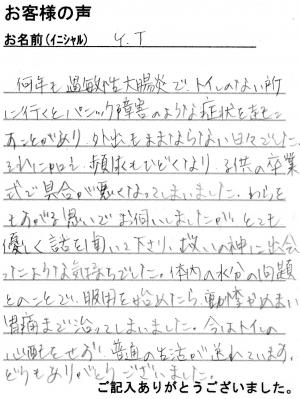 お客様の声
お名前(イニシャル) Y.T
何年も過敏性大腸炎で、トイレのない所
に行くとパニック障害のような症状をおこ
すことがあり、外出もままならない日々でした。
それに加え、頻尿もひどくなり、子供の卒業
式で具合が悪くなってしまいました。わらを
もつかむ思いでお伺いしましたが、とても
優しく話を聞いて下さり、救いの神に出会
ったような気持ちでした。体内の水分の問題
とのことで、服用を始めたら、動悸やめまい
胃痛まで治ってしまいました。今はトイレの
心配もせず、普通の生活が送れています。
どうもありがとうございました。
ご記入ありがとうございました。